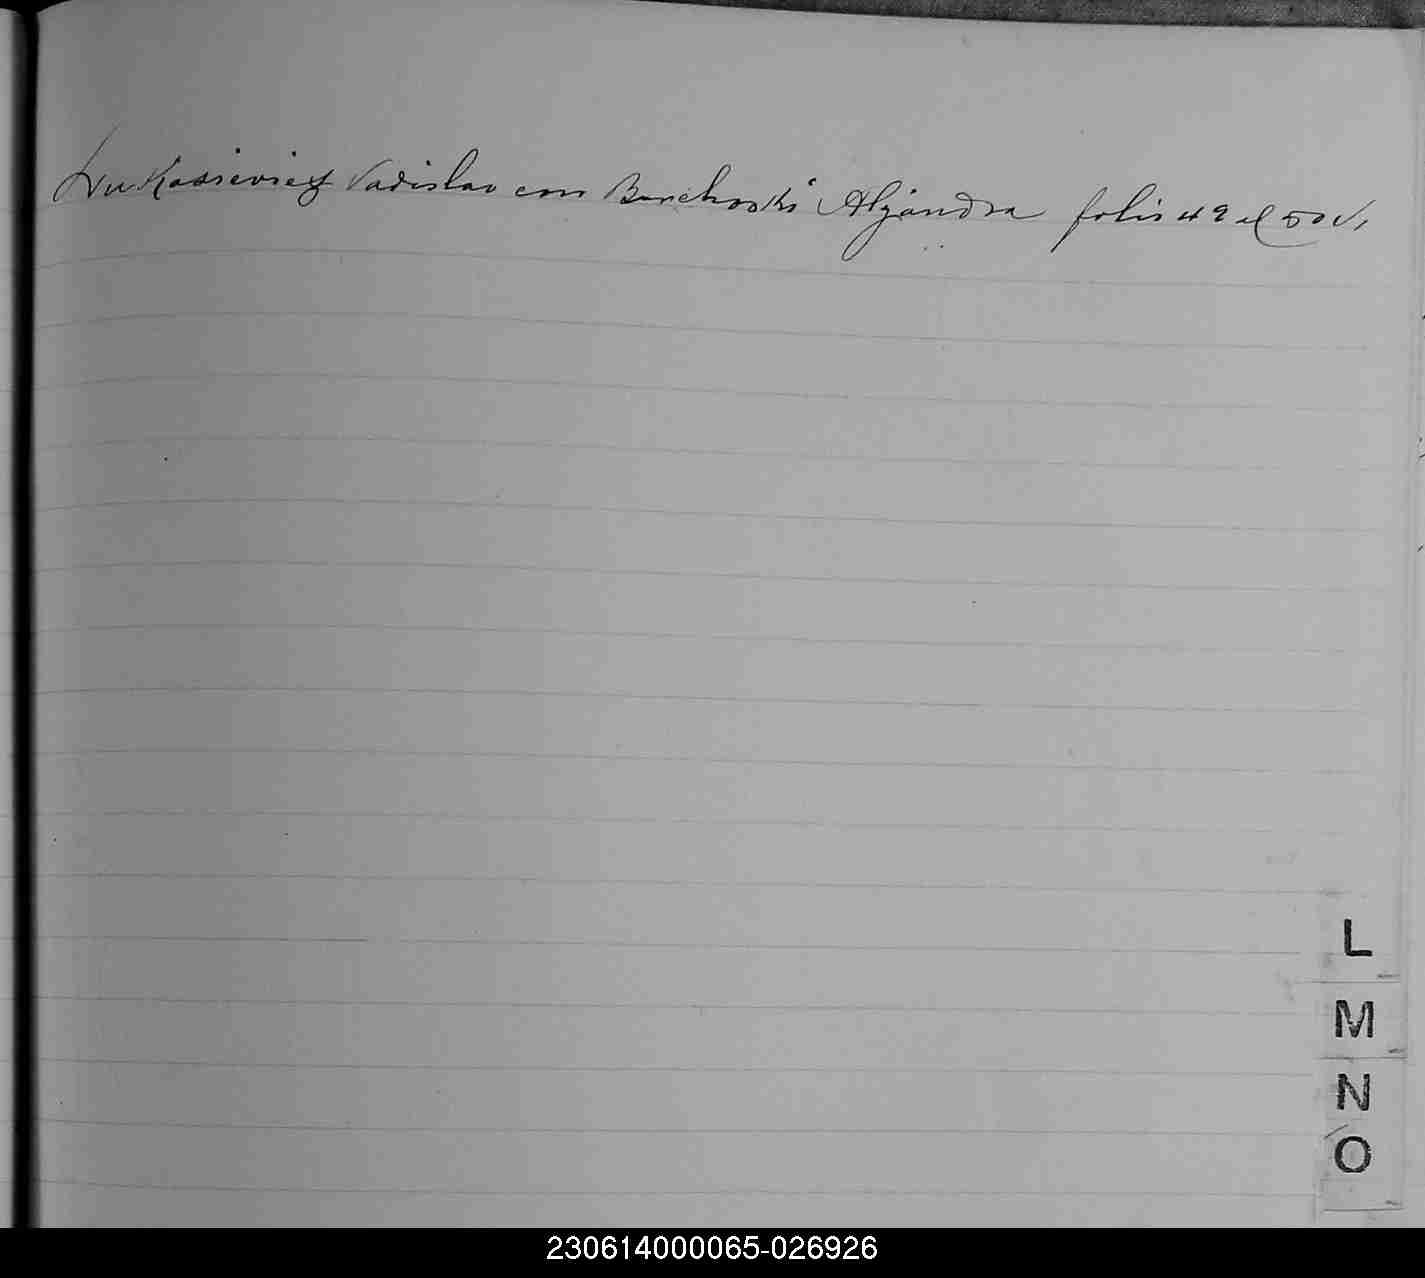 Lukasievicz Vadislav con Banchoski Alejandra folio 49 al 50 v.
L
M
N
O
230614000065-026926